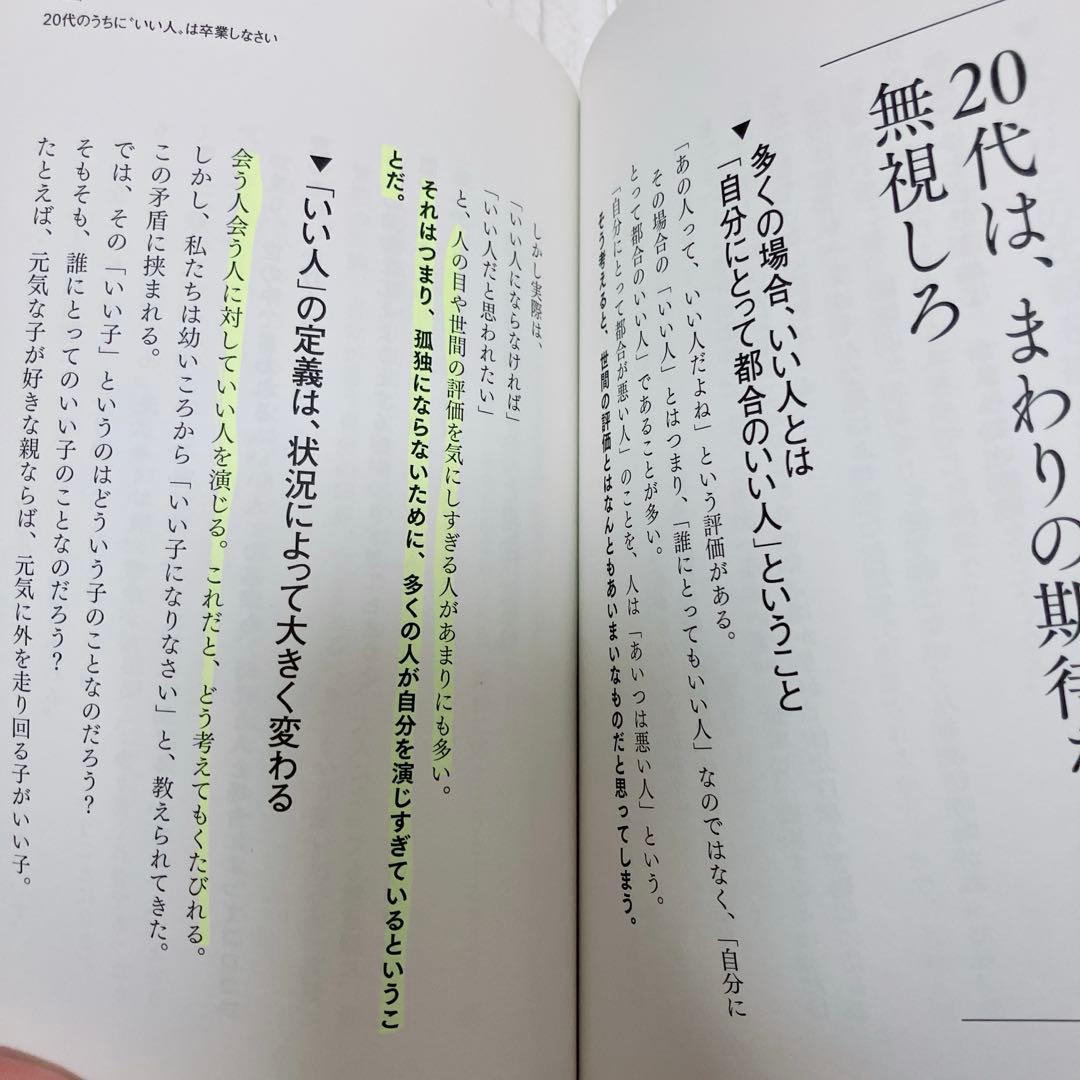 20代は、まわりの期待
無視しろ
▼多くの場合、いい人とは
「自分にとって都合のいい人」ということ
「あの人って、いい人だよね」という評価がある。
その場合の「いい人」とはつまり、「誰にとってもいい人」なのではなく、「自分に
とって都合のいい人」であることが多い。
「自分にとって都合が悪い人」のことを、人は「あいつは悪い人」という。
そう考えると、世間の評価とはなんともあいまいなものだと思ってしまう。
20代のうちに〝いい人〟は卒業しなさい
しかし実際は、
「いい人にならなければ」
「いい人だと思われたい」
と、人の目や世間の評価を気にしすぎる人があまりにも多い。
それはつまり、孤独にならないために、多くの人が自分を演じすぎているというこ
とだ。
▼「いい人」の定義は、状況によって大きく変わる
会う人会う人に対していい人を演じる。これだと、どう考えてもくたびれる。
しかし、私たちは幼いころから「いい子になりなさい」と、教えられてきた。
この矛盾に挟まれる。
では、その「いい子」というのはどういう子のことなのだろう?
そもそも、誰にとってのいい子のことなのだろう?
たとえば、元気な子が好きな親ならば、元気に外を走り回る子がいい子。